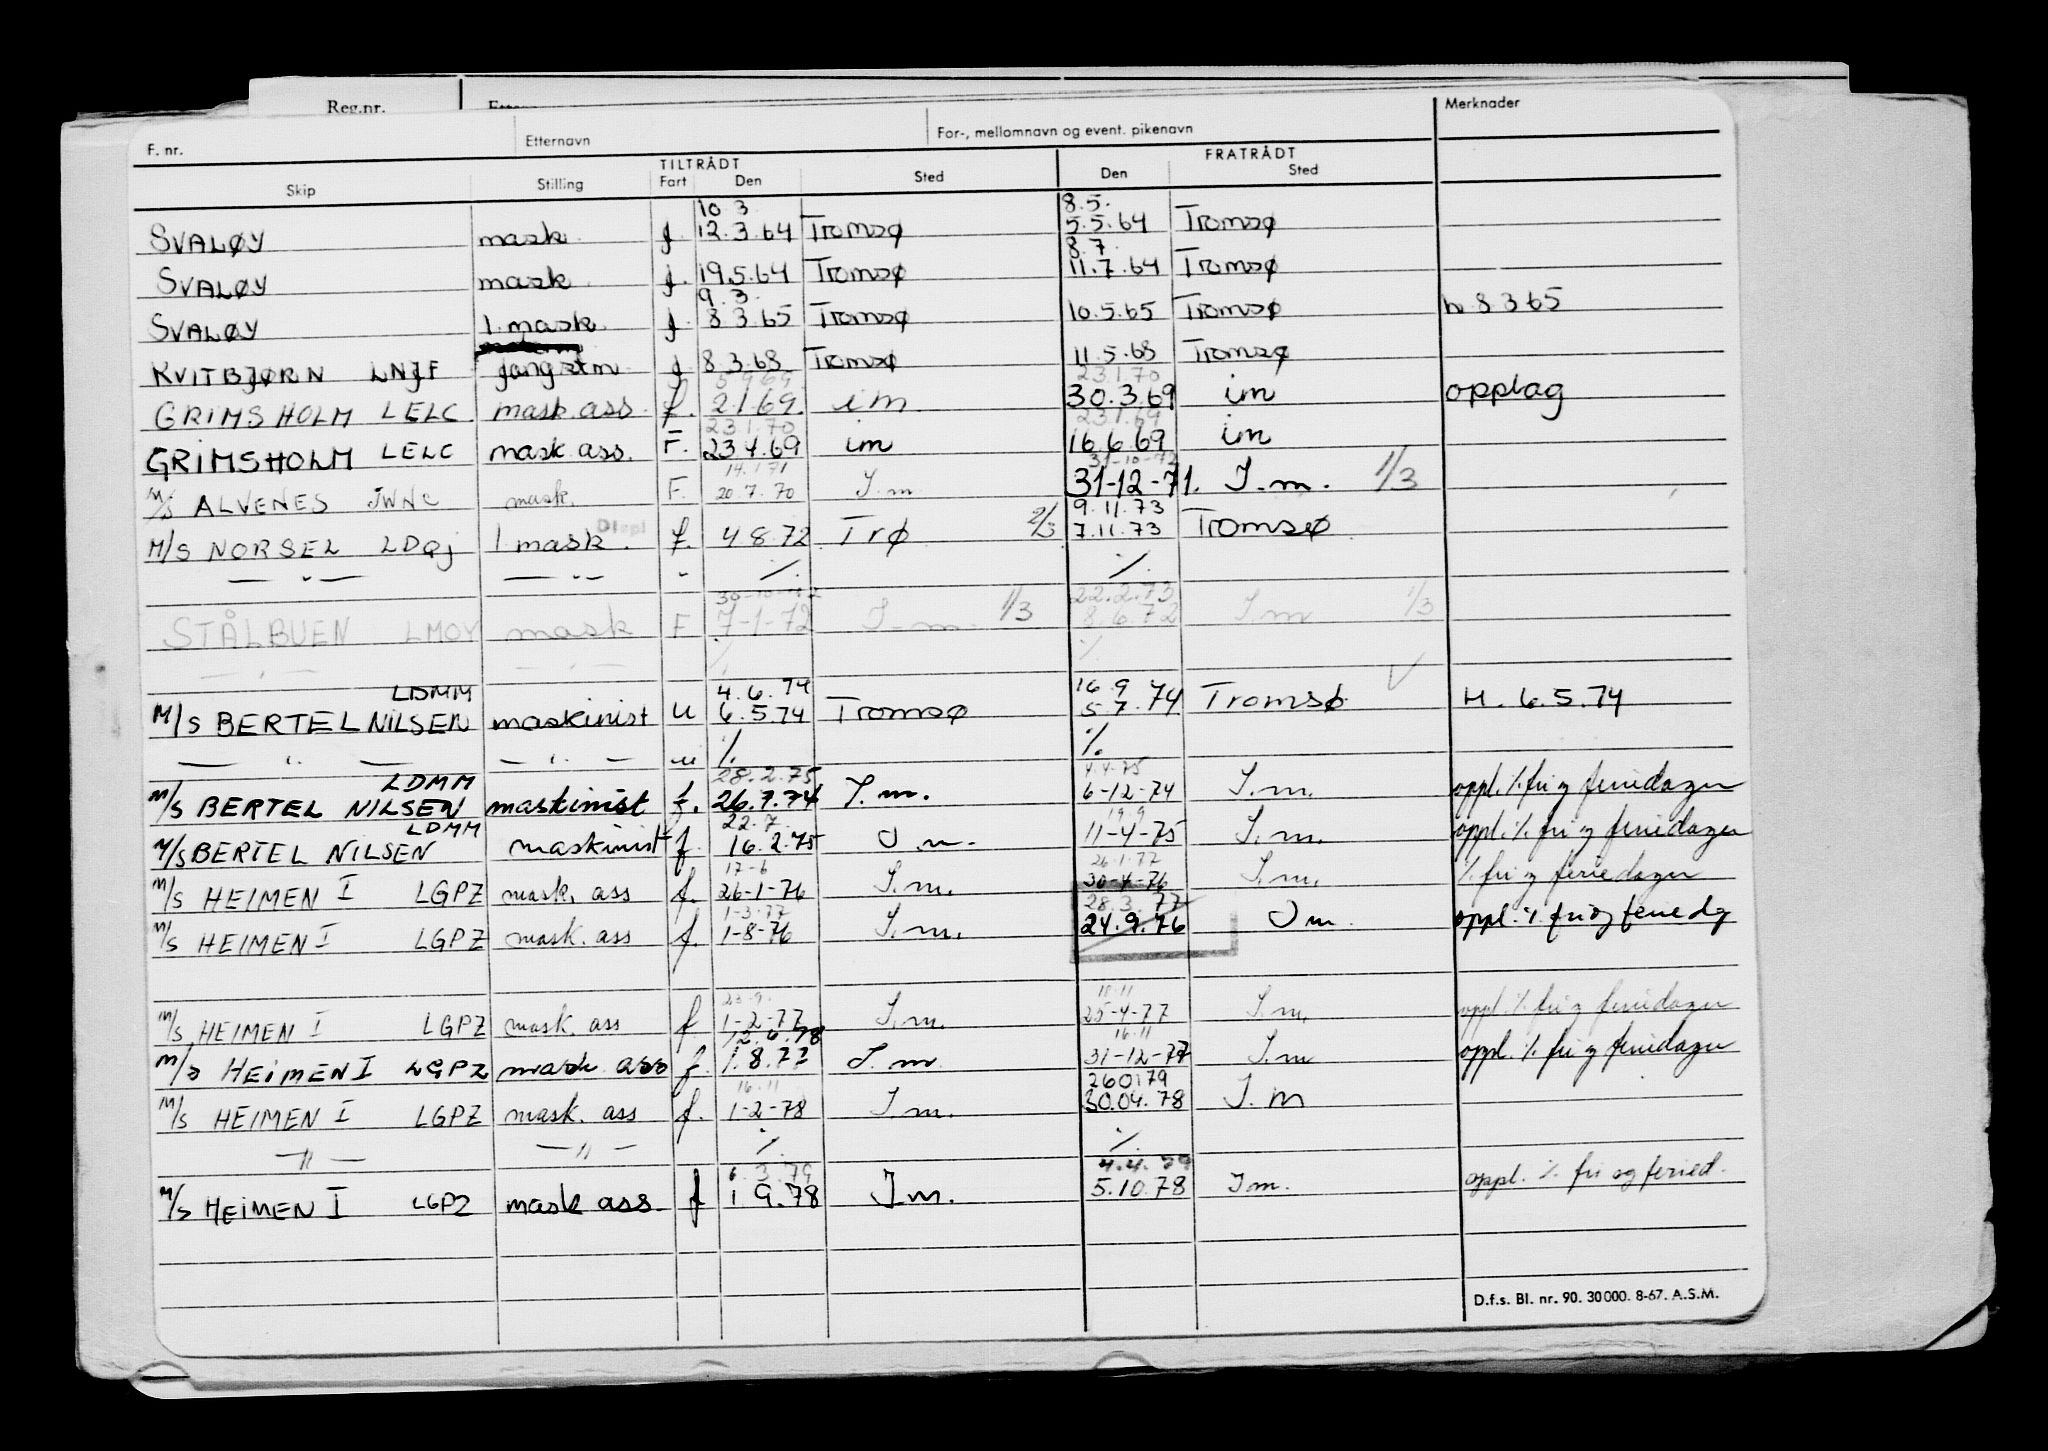 Reg.nr.
F. nr. Etternavn For-, mellomnavn og event. pikenavn Merknader
TILTRÅDT FRATRÅDT
Skip Stilling Fart Den Sted Den Sted
10 3 8.5.
SVALØY mask f. 12.3.64 Tromsø 5.5.64 Tromsø
8.7.
SVALØY mask f. 19.5.64 Tromsø 11.7.64 Tromsø
9.3.
SVALØY 1. mask f. 8 3.65 Tromsø 10.5.65 Tromsø h 8 3 65
KVITBJØRN LNJF fangstm f 8.3.68 Tromsø 11.5.68 Tromsø
5 9 69 23.1.70
GRIMSHOLM LELC mask.ass. f. 2.1.69. im 30.3.69 im opplag
23 1.70 23.1.69
GRIMSHOLM LELC mask ass. F. 23 4.69 im 16.6.69 im
14.1 71 31-10-72
M/S ALVENES JWNC mask. F. 20.7.70 I.m. 31-12-71. I.m. 1/3
9.11.73
M/S NORSEL LDQJ 1 mask. f. 4 8.72 Trø 2/3 7.11.73 Tromsø
— " — — " — " %. %.
30-10-72 22.2.73
STÅLBUEN LMOY mask F 7-1-72 I.m. 1/3 8.6.72 I.m 1/3
— " — — " — % %
LDMM 4.6.74 16 9
M/S BERTEL NILSEN maskinist U 6.5.74 Tromsø 5 7.74 Tromsø H. 6.5.74
— " — — " — u %. %.
LDMM 28.2.75 4.4.75
M/S BERTEL NILSEN maskinist f. 26.7.74 I.m. 6-12-74 I.m. oppl. %. fri og feriedager
LDMM 22.7. 19.9
M/S BERTEL NILSEN maskinist f. 16.2.75 I m. 11-4-75 I.m. oppl. %. fri og feriedager
17-6 26.1.77
M/S HEIMEN I LGPZ mask. ass f. 26-1-76 I.m. 30-4-76 I.m. % fri og feriedager
1-3-77 28.3.77
M/S HEIMEN I LGPZ mask. ass f. 1-8-76 I.m. 24.9.76 I m. oppl. % fri og feriedg
23.9. 18.11
M/S HEIMEN I LGPZ mask. ass f 1-2-77 I.m. 25-4-77 I.m. oppl. % fri og feriedager
12.6.78 16.11
M/S HEIMEN I LGPZ mask ass f. 1.8.77 I.m 31-12-77 I.m oppl. % fri og feriedager
16.11 260179
M/S HEIMEN I LGPZ mask. ass f. 1-2-78 I.m. 30.04.78 I.m
— " — — " — % %
6.3.79 4.4.79
M/S HEIMEN I LGPZ mask ass. f 1 9.78 I.m. 5.10.78 I m. oppl. % fri og feried.
D.f.s. Bl. nr. 90. 30 000. 8-67. A.S.M.